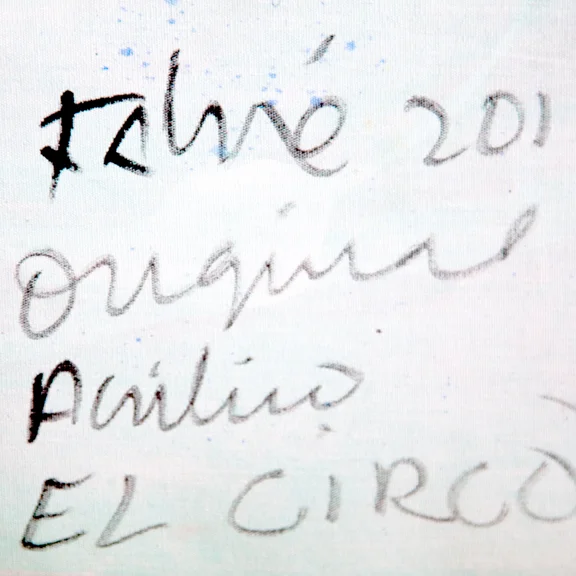 201
Original
Acrílico
EL CIRCO